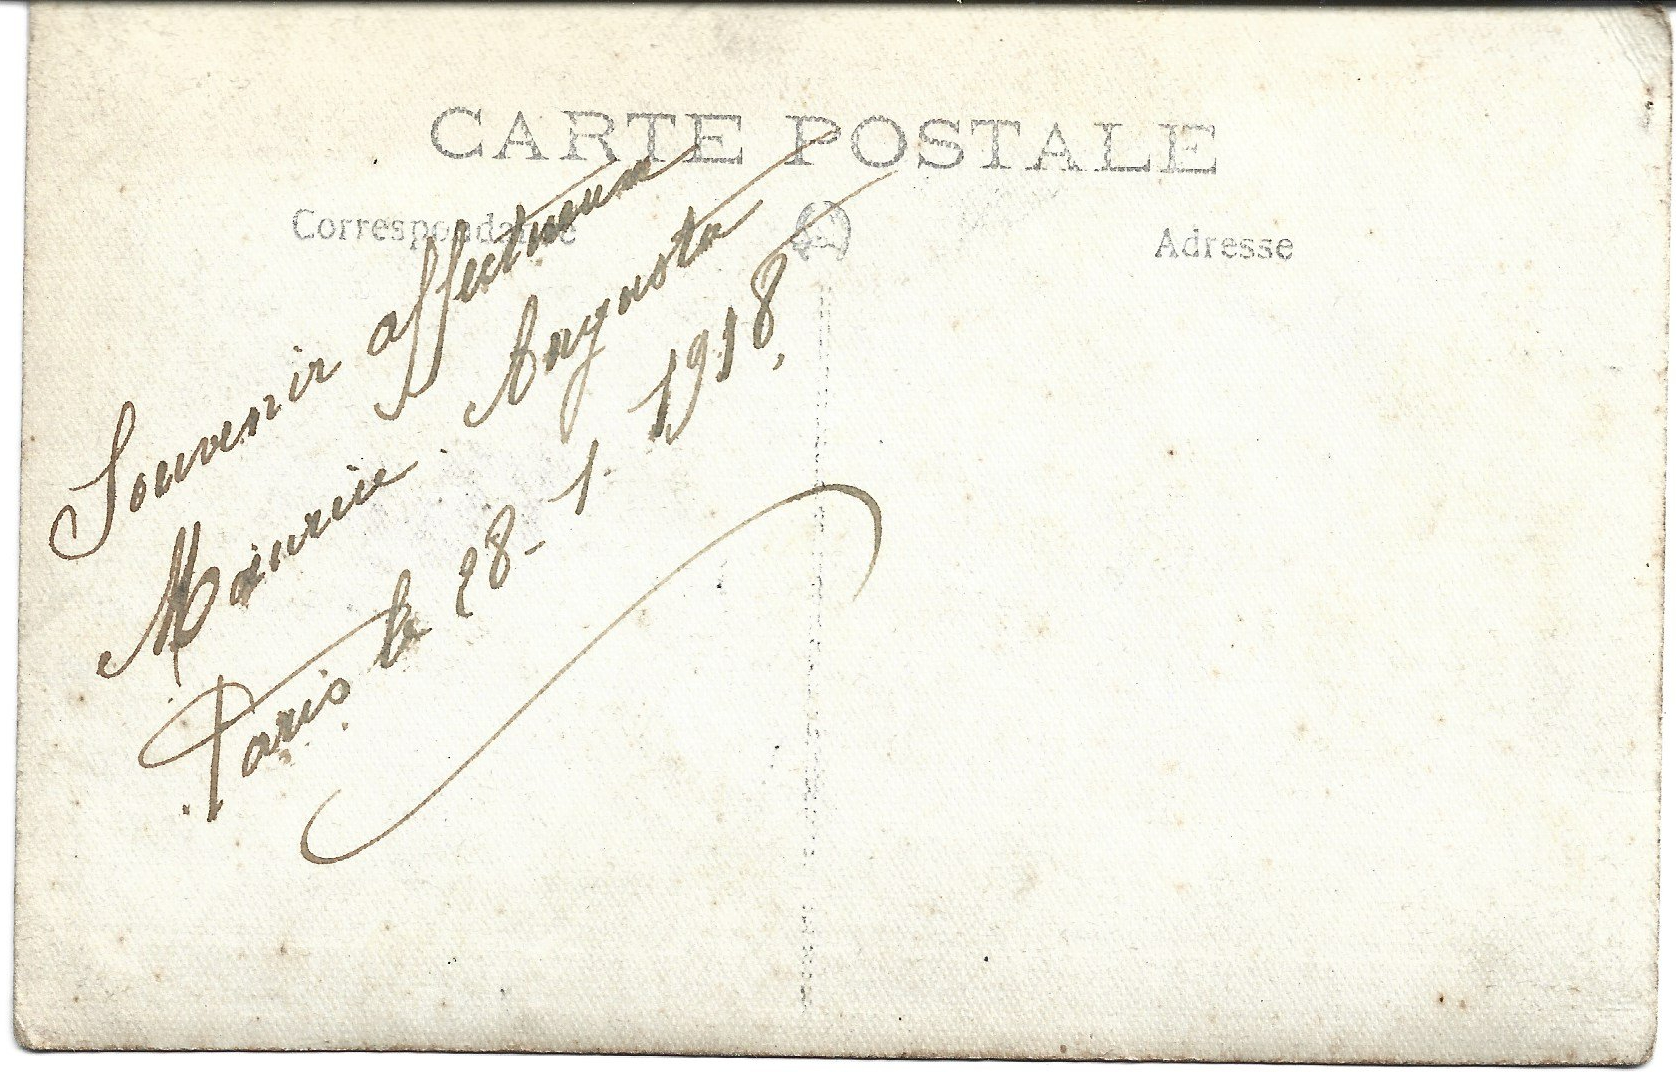 CARTE POSTALE
Correspondance
Adresse
Souvenir affectueux
Paris le 28-1-1918,